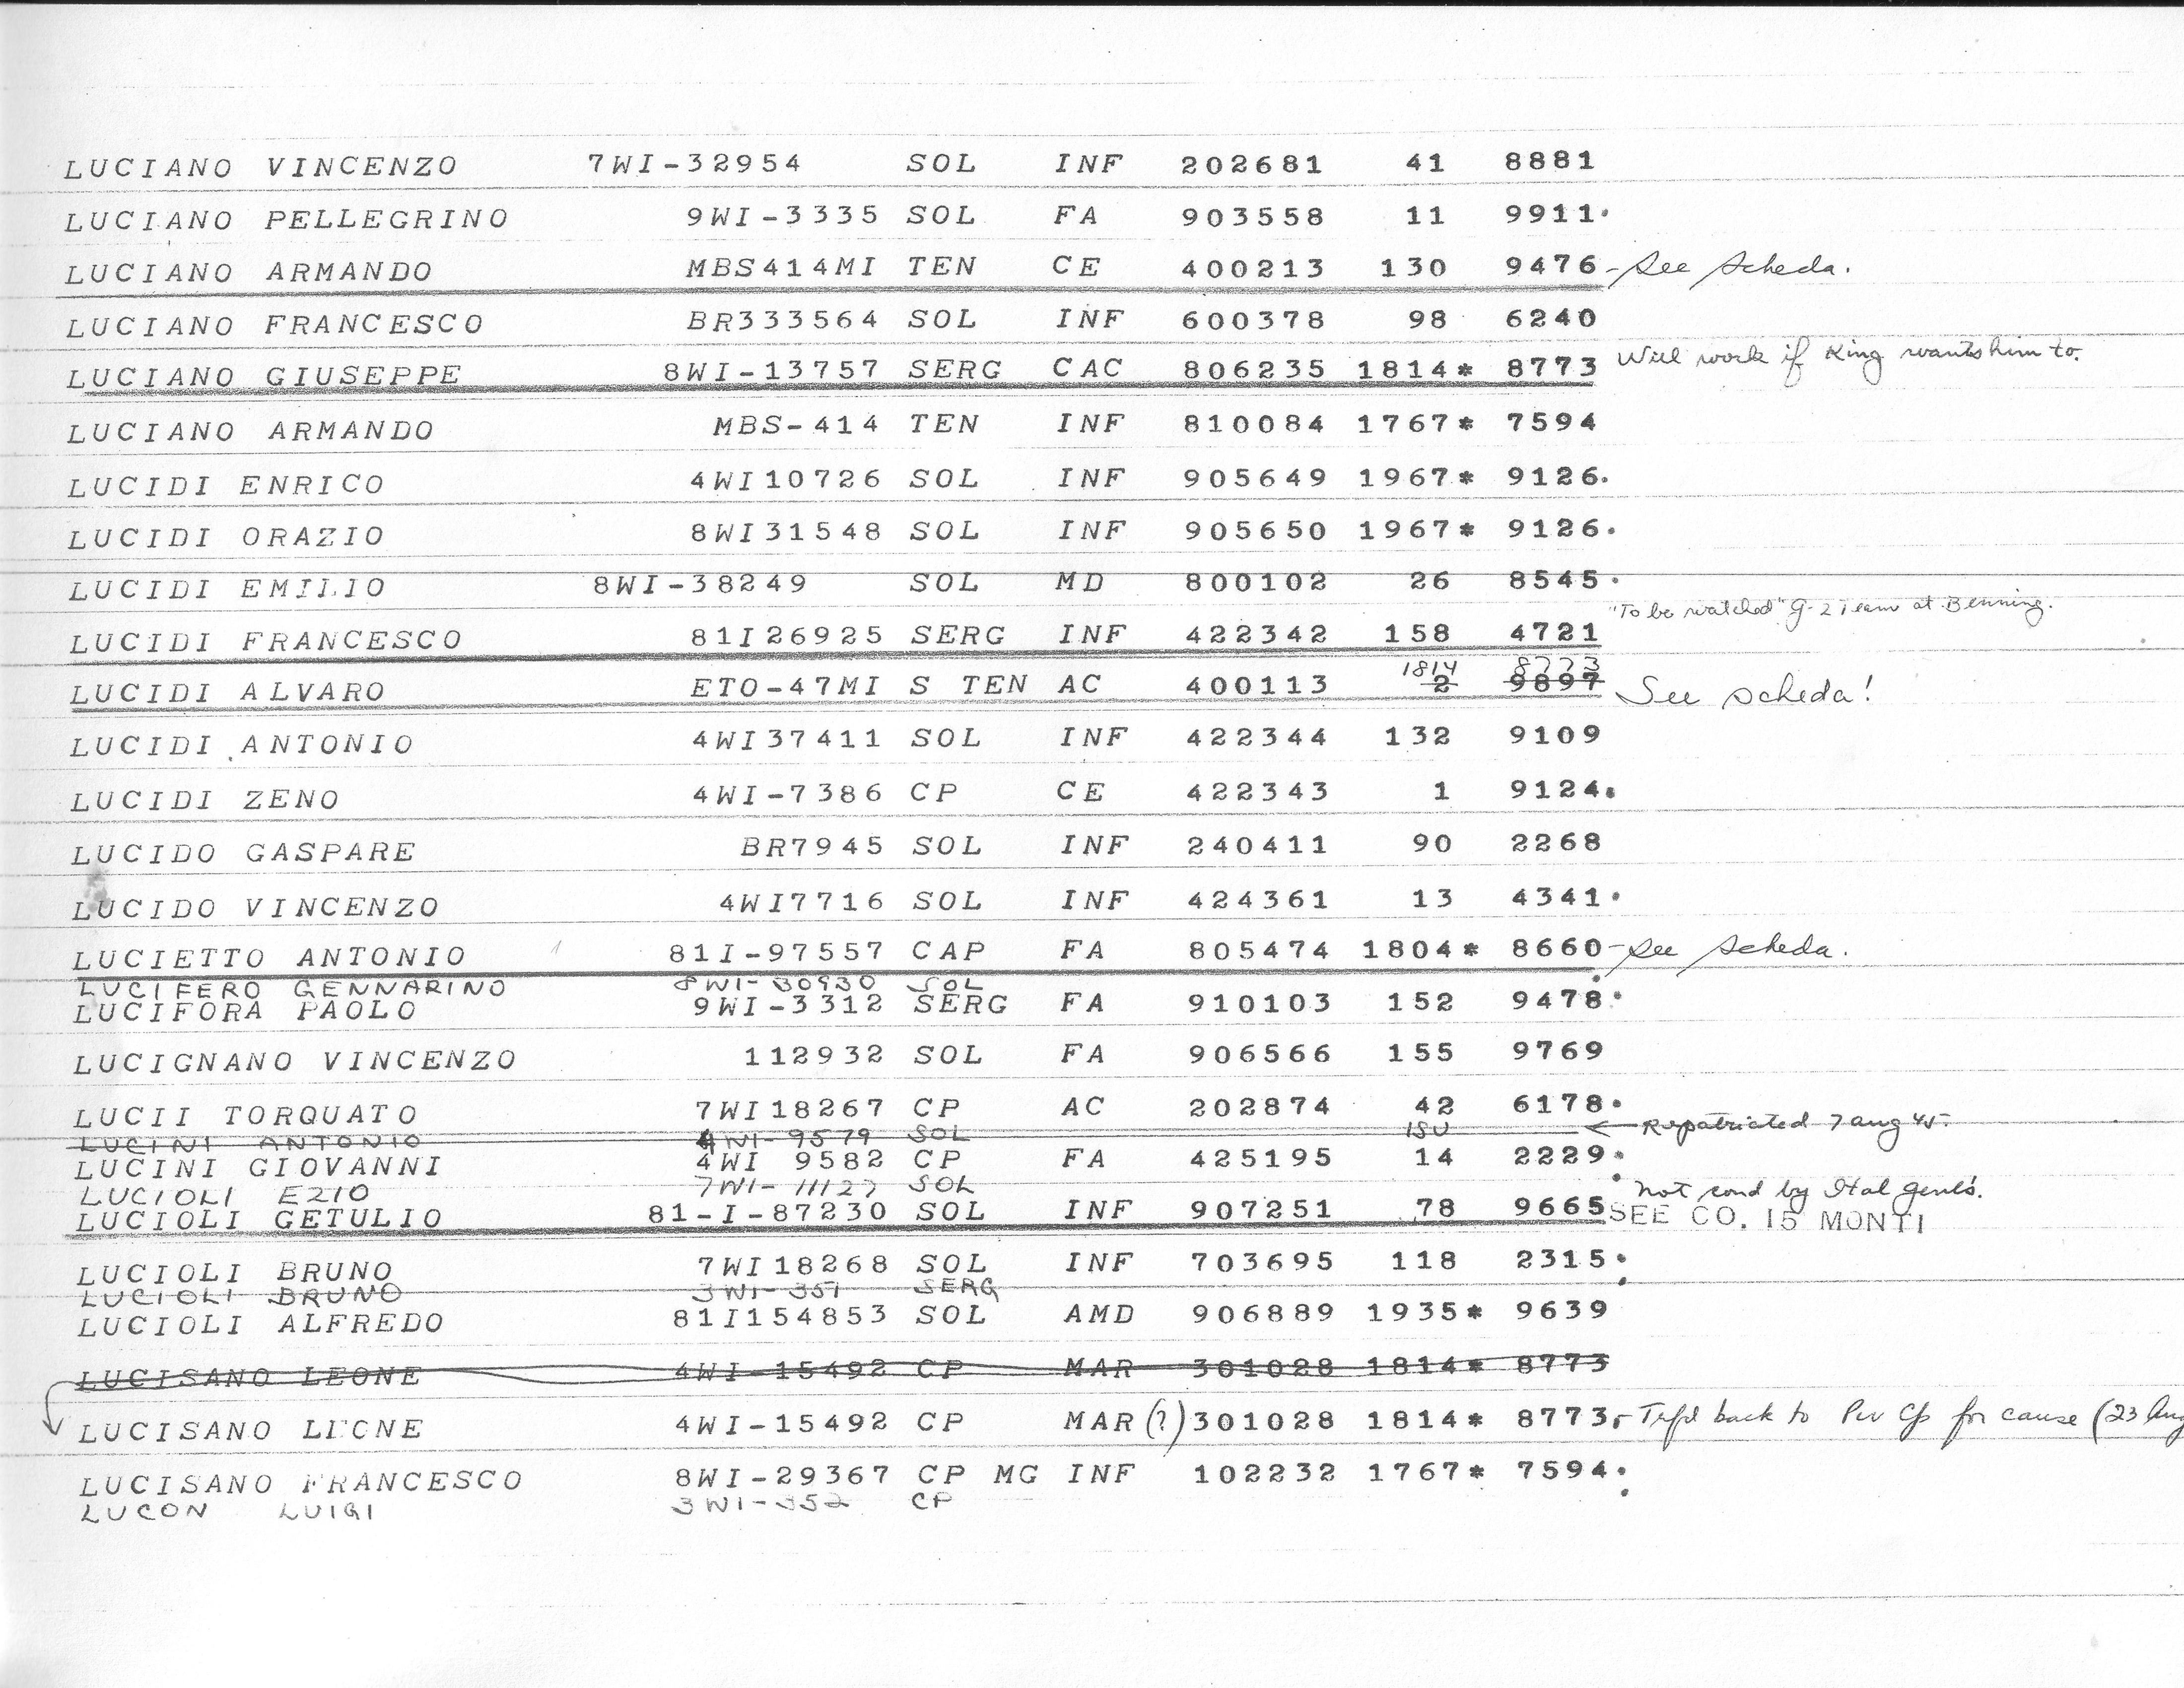 LUCIANO VINCENZO 7WI-32954 SOL INF 202681 41 8881
LUCIANO PELLEGRINO 9WI-3335 SOL FA 903558 11 9911.
LUCIANO ARMANDO MBS414MI TEN CE 400213 130 9476 - See scheda.
LUCIANO FRANCESCO BR333564 SOL INF 600378 98 6240
LUCIANO GIUSEPPE 8WI-13757 SERG CAC 806235 1814* 8773 Will work if King wants him to.
LUCIANO ARMANDO MBS-414 TEN INF 810084 1767* 7594
LUCIDI ENRICO 4WI10726 SOL INF 905649 1967* 9126.
LUCIDI ORAZIO 8WI31548 SOL INF 905650 1967* 9126.
LUCIDI EMILIO 8WI-38249 SOL MD 800102 26 8545.
"To be watched" G-2 Team at Benning.
LUCIDI FRANCESCO 81I26925 SERG INF 422342 158 4721
1814 8773
LUCIDI ALVARO ETO-47MI S TEN AC 400113 2 9897 See scheda!
LUCIDI ANTONIO 4WI37411 SOL INF 422344 132 9109
LUCIDI ZENO 4WI-7386 CP CE 422343 1 9124.
LUCIDO GASPARE BR7945 SOL INF 240411 90 2268
LUCIDO VINCENZO 4WI7716 SOL INF 424361 13 4341.
LUCIETTO ANTONIO 81I-97557 CAP FA 805474 1804* 8660 - See scheda.
LUCIFERO GENNARINO 8WI-30930 SOL
LUCIFORA PAOLO 9WI-3312 SERG FA 910103 152 9478.
LUCIGNANO VINCENZO 112932 SOL FA 906566 155 9769
LUCII TORQUATO 7WI18267 CP AC 202874 42 6178.
LUCINI ANTONIO 4WI-9579 SOL ISU ← Repatriated 7 Aug 45.
LUCINI GIOVANNI 4WI 9582 CP FA 425195 14 2229.
LUCIOLI EZIO 7WI-11127 SOL Not cond by Ital genl's.
LUCIOLI GETULIO 81-I-87230 SOL INF 907251 78 9665 SEE CO. 15 MONTI
LUCIOLI BRUNO 7WI18268 SOL INF 703695 118 2315.
LUCIOLI BRUNO 3WI-351 SERG
LUCIOLI ALFREDO 81I154853 SOL AMD 906889 1935* 9639
LUCISANO LEONE 4WI-15492 CP MAR 301028 1814* 8773
LUCISANO LEONE 4WI-15492 CP MAR (?) 301028 1814* 8773 - Trfd back to PW Cp for cause (23 Aug
LUCISANO FRANCESCO 8WI-29367 CP MG INF 102232 1767* 7594.
LUCON LUIGI 3WI-352 CP